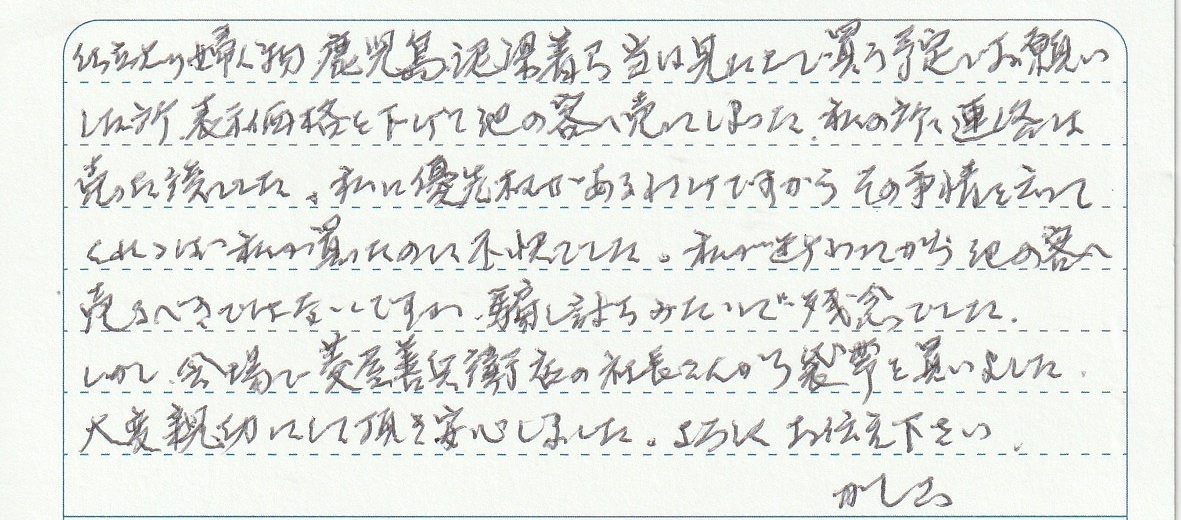 仕立上り婦人物 鹿児島 泥染着尺 当は見た上で買う予定でお願い
した所 表示価格を下げて他の客へ売ってしまった。私の所に連絡は
売った後でした。私に優先权があるわけですから その事情を言って
くれれば 私が買ったのに不快でした。私が断わってから 他の客へ
売るべきではないですか 騙し討ちみたいで 残念でした。
しかし 会場で 菱屋善兵衛店の社長さんから 袋帯を買いました。
大変親切にして頂き安心しました。よろしく お伝え下さい。
かしこ